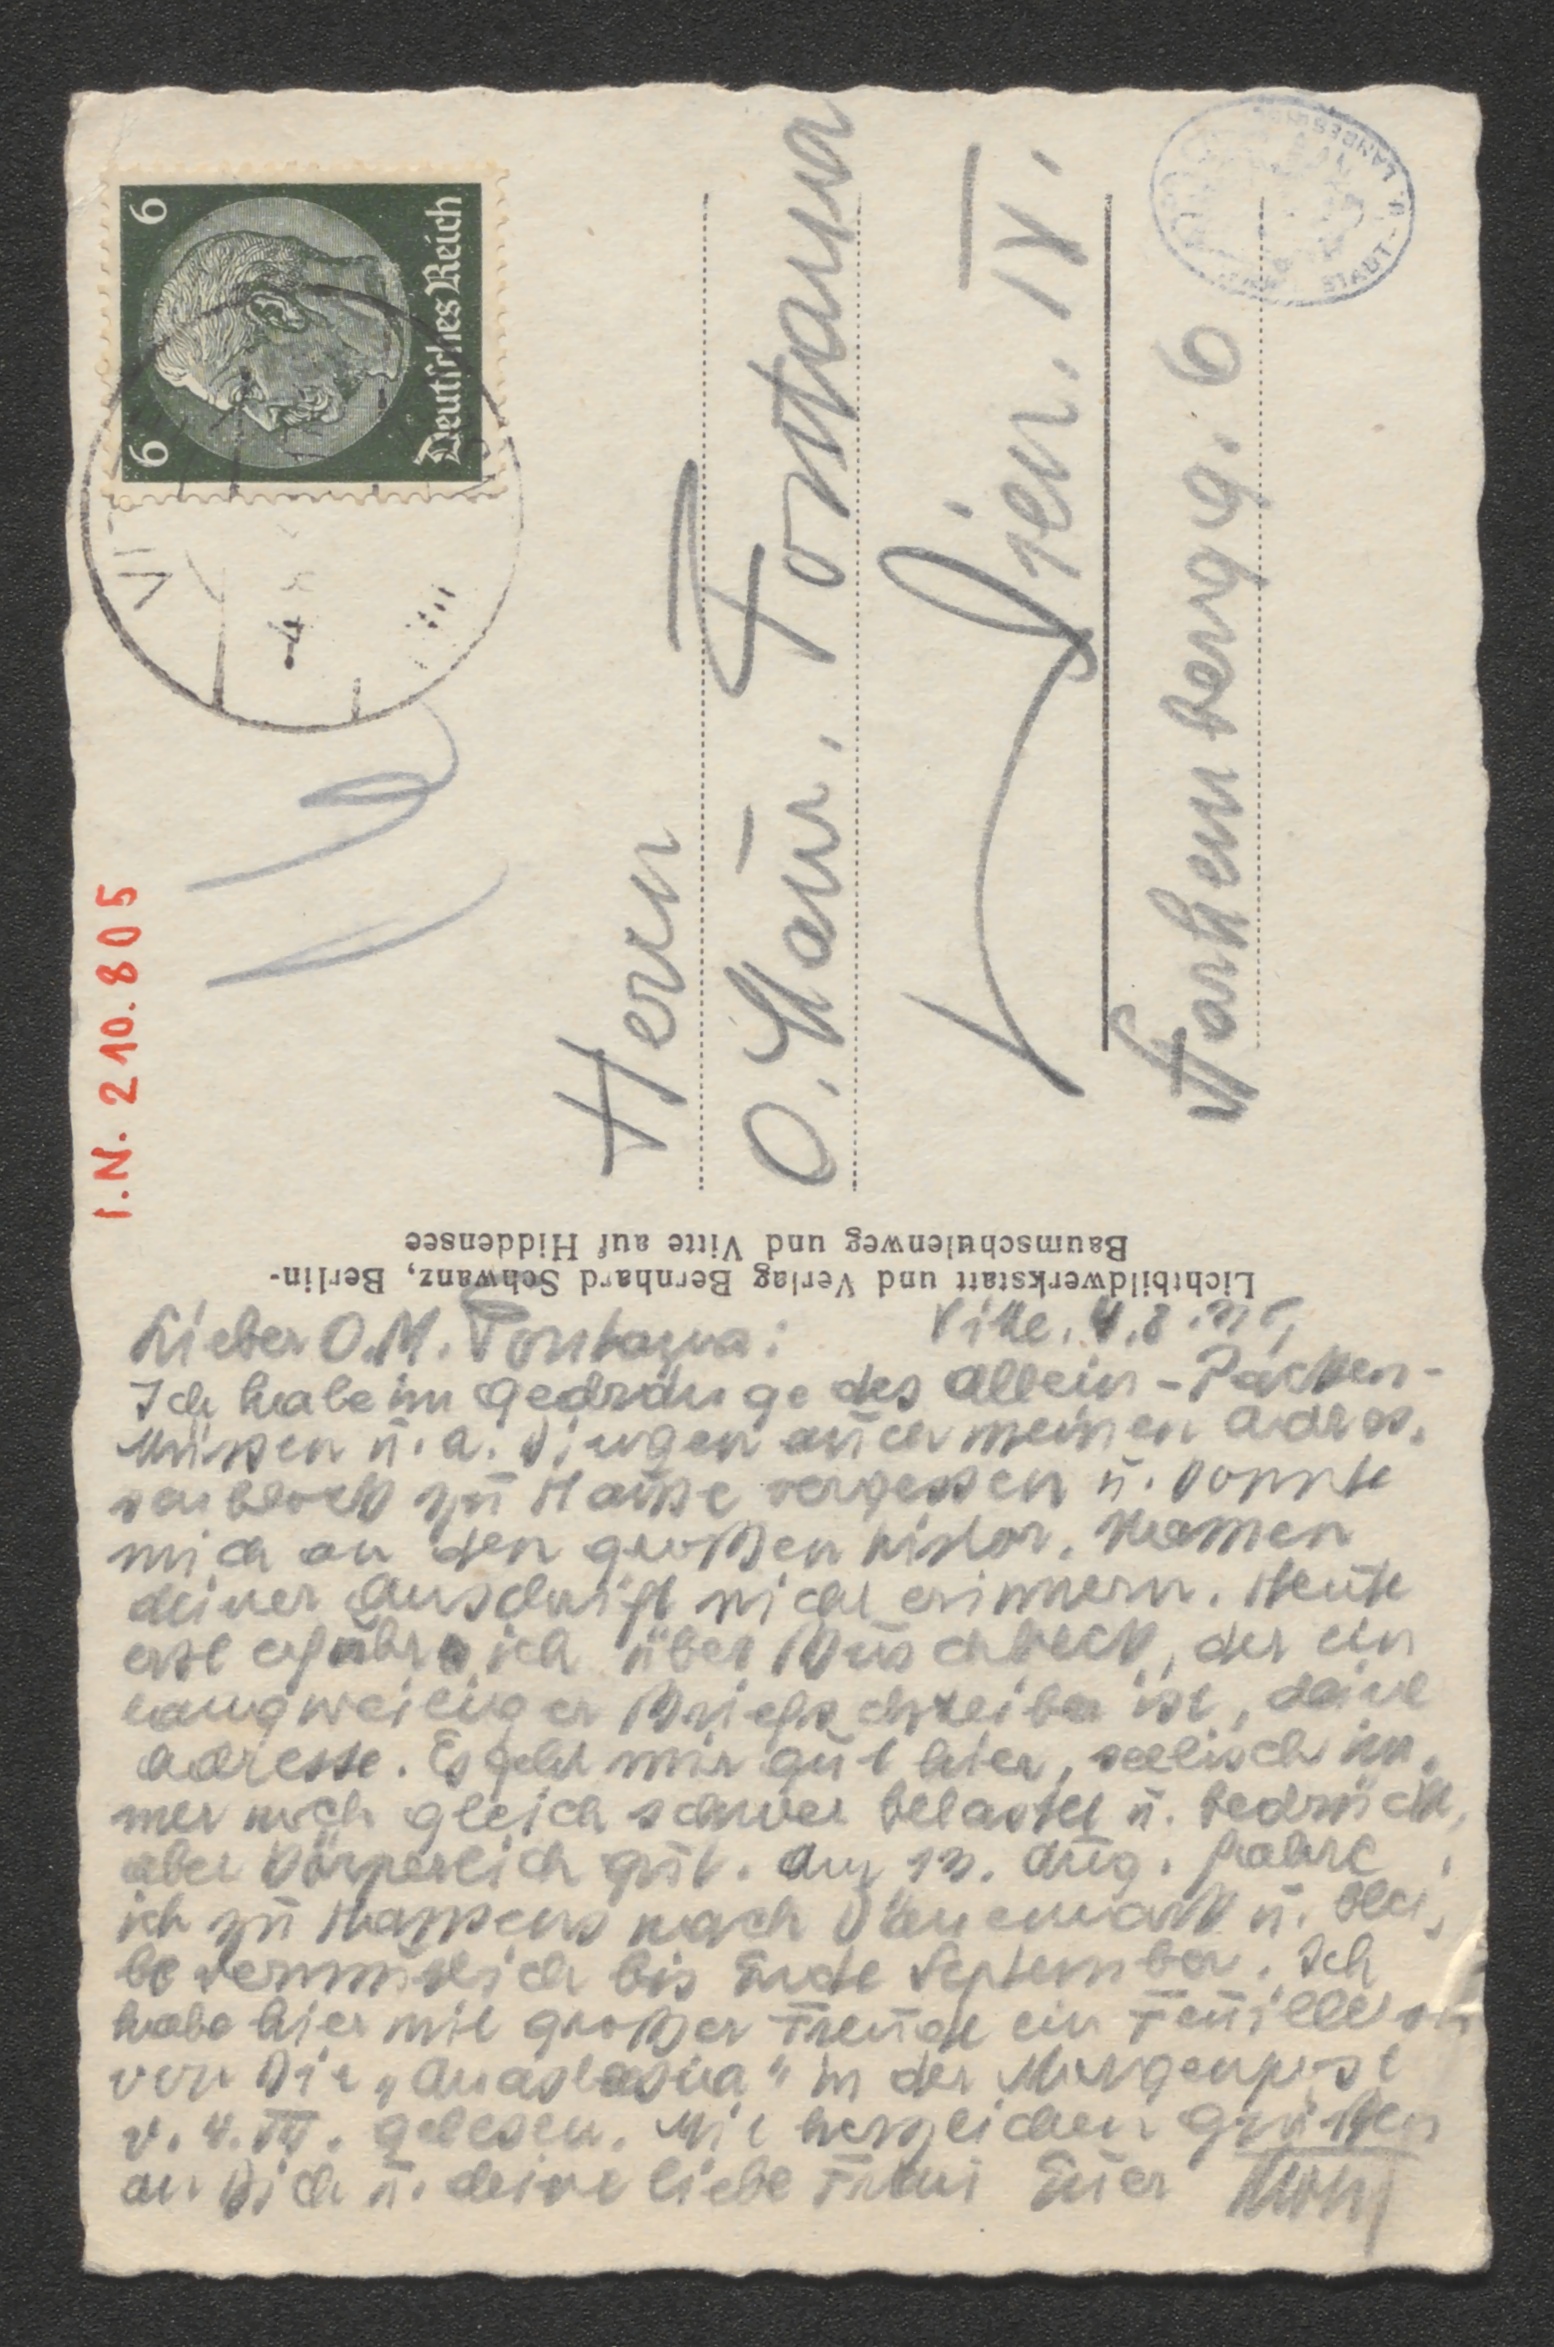 I.N. 210.805
6
6
Deutsches Reich
VIT
-4.
Herrn
O. Maur. Fontana
Wien. IV.
Frankenbergg. 6
Lichtbildwerkstatt und Verlag Bernhard Schwanz, Berlin-
Baumschulenweg und Vitte auf Hiddensee
Lieber O.M. Fontana: Vitte, 4.8.
Ich habe im Gedränge des Allein-Packen-
Müssen u. a. Dingen auch meinen Adres-
senblock zu Hause vergessen u. konnte
mich an den großen histor. Namen
deiner Anschrift nicht erinnern. Heute
erst erfuhr ich über Buschbeck, der ein
langweiliger Briefschreiber ist, deine
Adresse. Es geht mir gut hier, seelisch im-
mer noch gleich schwer belastet u. bedrückt,
aber körperlich gut. Am 13. Aug. fahre
ich zu nach Dänemark u. blei-
be vermutlich bis Ende September. Ich
habe hier mit großer Freude ein Feuilleton
von Dir „Anastasia" in der Morgenpost
v. 4. gelesen. Mit herzlichen Grüßen
an Dich u. deine liebe Frau Euer